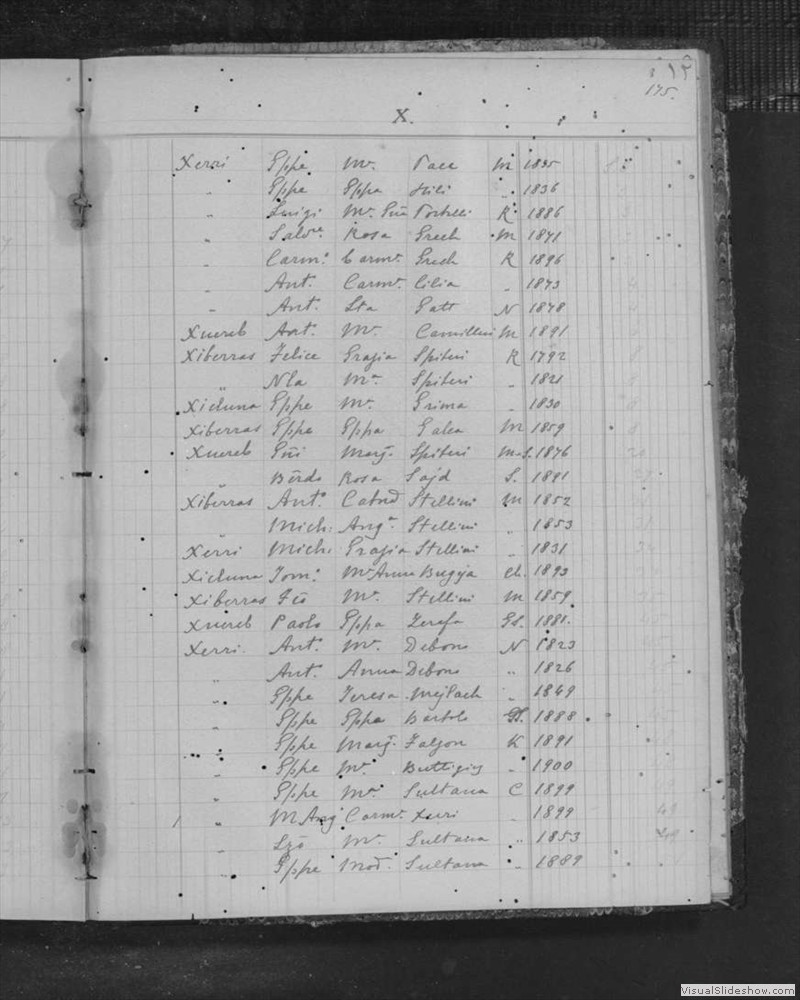 175.
X.
Xerri Gppe Ma. Pace M 1835
" Gppe Gppa Hili " 1836
" Luigi Ma. Portelli K 1886
" Salvre. Rosa Grech M 1871
" Carmo. Carma. Grech K 1896
" Anto. Carma. Cilia " 1873
" Anto. Gatt N 1878
Xuereb Anto. Ma. Camilleri M 1891
Xiberras Felice Grazia Spiteri K 1792
" Nla Ma. Spiteri " 1821
Xicluna Gppe Ma. Grima " 1830
Xiberras Gppe Gppa Galea M 1859
Xuereb Gni Marga. Spiteri 1876
" Bērdo Rosa Sajd S. 1891
Xiberras Anto. Stellini M 1852
Mich: Anga. Stellini " 1853
Xerri Mich: Grazia Stellini " 1831
Xicluna Tomo. Ma Anna Bugeja 1893
Xiberras Ma. Stellini M 1859
Xuereb Paolo Gppa Zerafa Gl. 1881.
Xerri. Anto. Ma. Debono N 1823
" Anto. Anna Debono " 1826
" Gppe Teresa Mejlach " 1849
" Gppe Gppa Bartolo 1888
" Gppe Marga. Falzon K 1891
" Gppe Ma. Buttigieg " 1900
" Gppe Ma. Sultana C 1899
" M Ang Carma. Xerri " 1899
" Ma. Sultana " 1853
" Gppe Sultana " 1889
VisualSlideshow.com